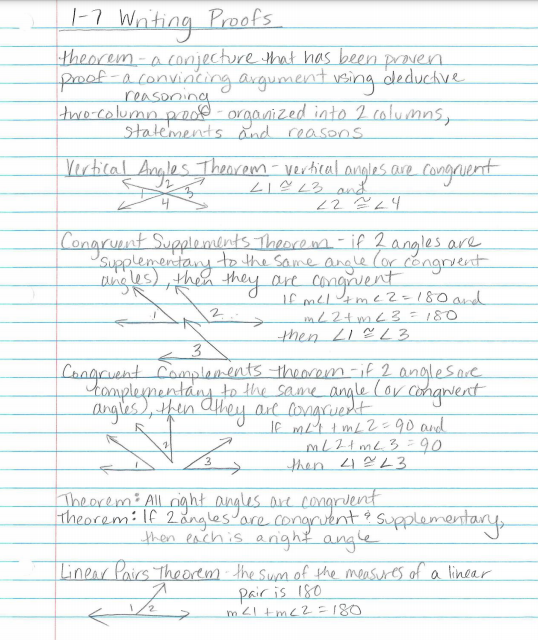 1-7 Writing Proofs
theorem - a conjecture that has been proven
proof - a convincing argument using deductive
reasoning
two-column proof - organized into 2 columns,
statements and reasons
Vertical Angles Theorem - vertical angles are congruent
1 2 3 4
∠1 ≅ ∠3 and
∠2 ≅ ∠4
Congruent Supplements Theorem - if 2 angles are
supplementary to the same angle (or congruent
angles), then they are congruent
If m∠1 + m∠2 = 180 and
1 2
m∠2 + m∠3 = 180
then ∠1 ≅ ∠3
3
Congruent Complements theorem - if 2 angles are
complementary to the same angle (or congruent
angles), then they are congruent
If m∠1 + m∠2 = 90 and
2
m∠2 + m∠3 = 90
1 3
then ∠1 ≅ ∠3
Theorem: All right angles are congruent
Theorem: If 2 angles are congruent & supplementary,
then each is a right angle
Linear Pairs Theorem - the sum of the measures of a linear
pair is 180
1 2
m∠1 + m∠2 = 180